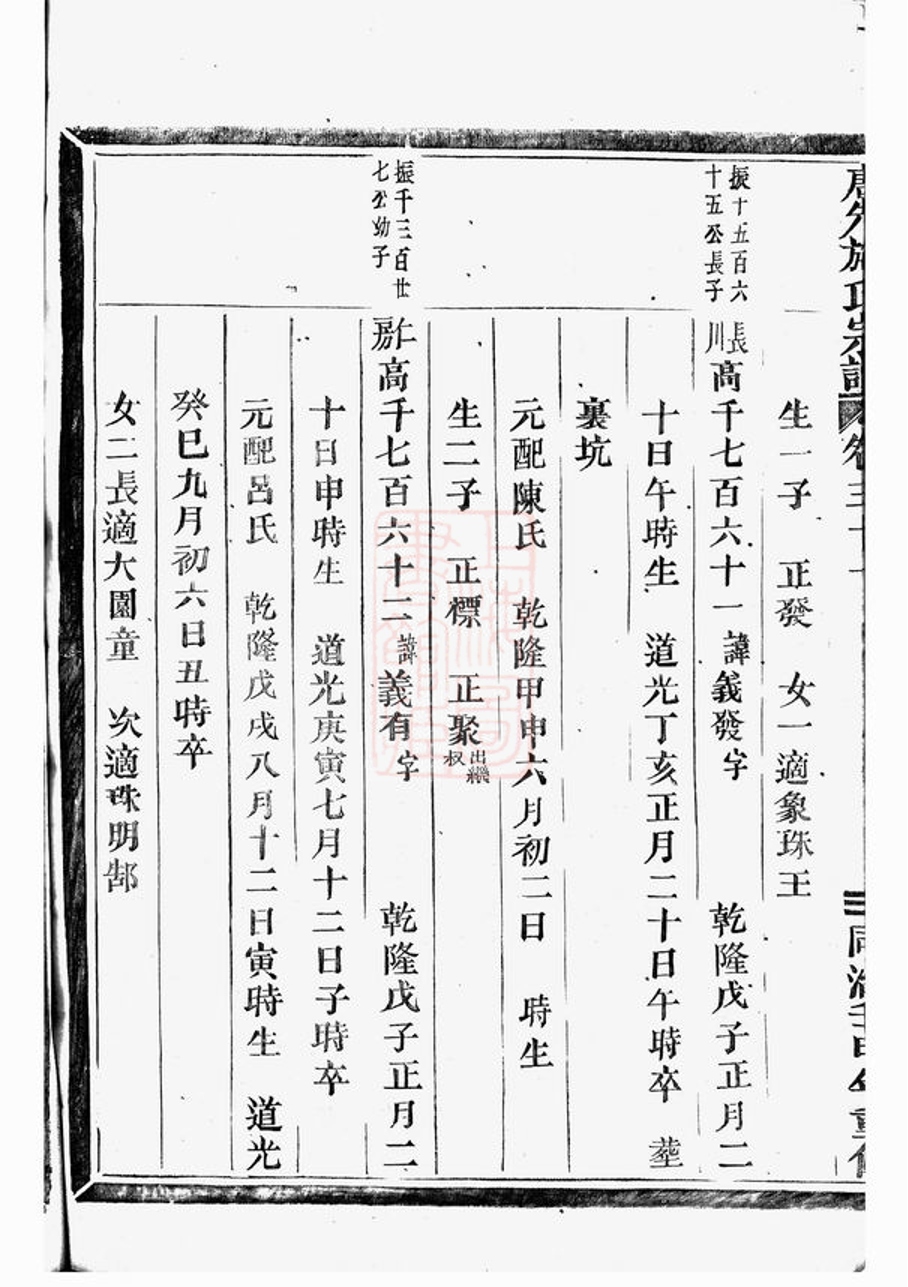 施氏宗譜 卷三十一 同治壬申年重修
生一子 正發 女一適象珠王
振十五百六
十五公長子
長
川
高千七百六十一諱義發字 乾隆戊子正月二
十日午時生 道光丁亥正月二十日午時卒 塟
裏坑
元配陳氏 乾隆甲申六月初二日 時生
生二子 正標 正聚出繼叔
振千三百廿
七公幼子
仁
房
高千七百六十二諱義有字 乾隆戊子正月二
十日申時生 道光庚寅七月十二日子時卒
元配呂氏 乾隆戊戌八月十二日寅時生 道光
癸巳九月初六日丑時卒
女二長適大園童 次適珠明郜